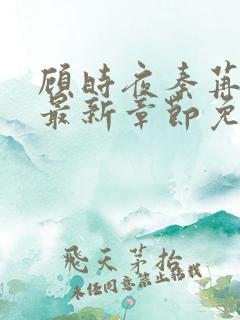 顾時夜秦苒
最新章節免
飛天茅拾
未经同意禁止转载